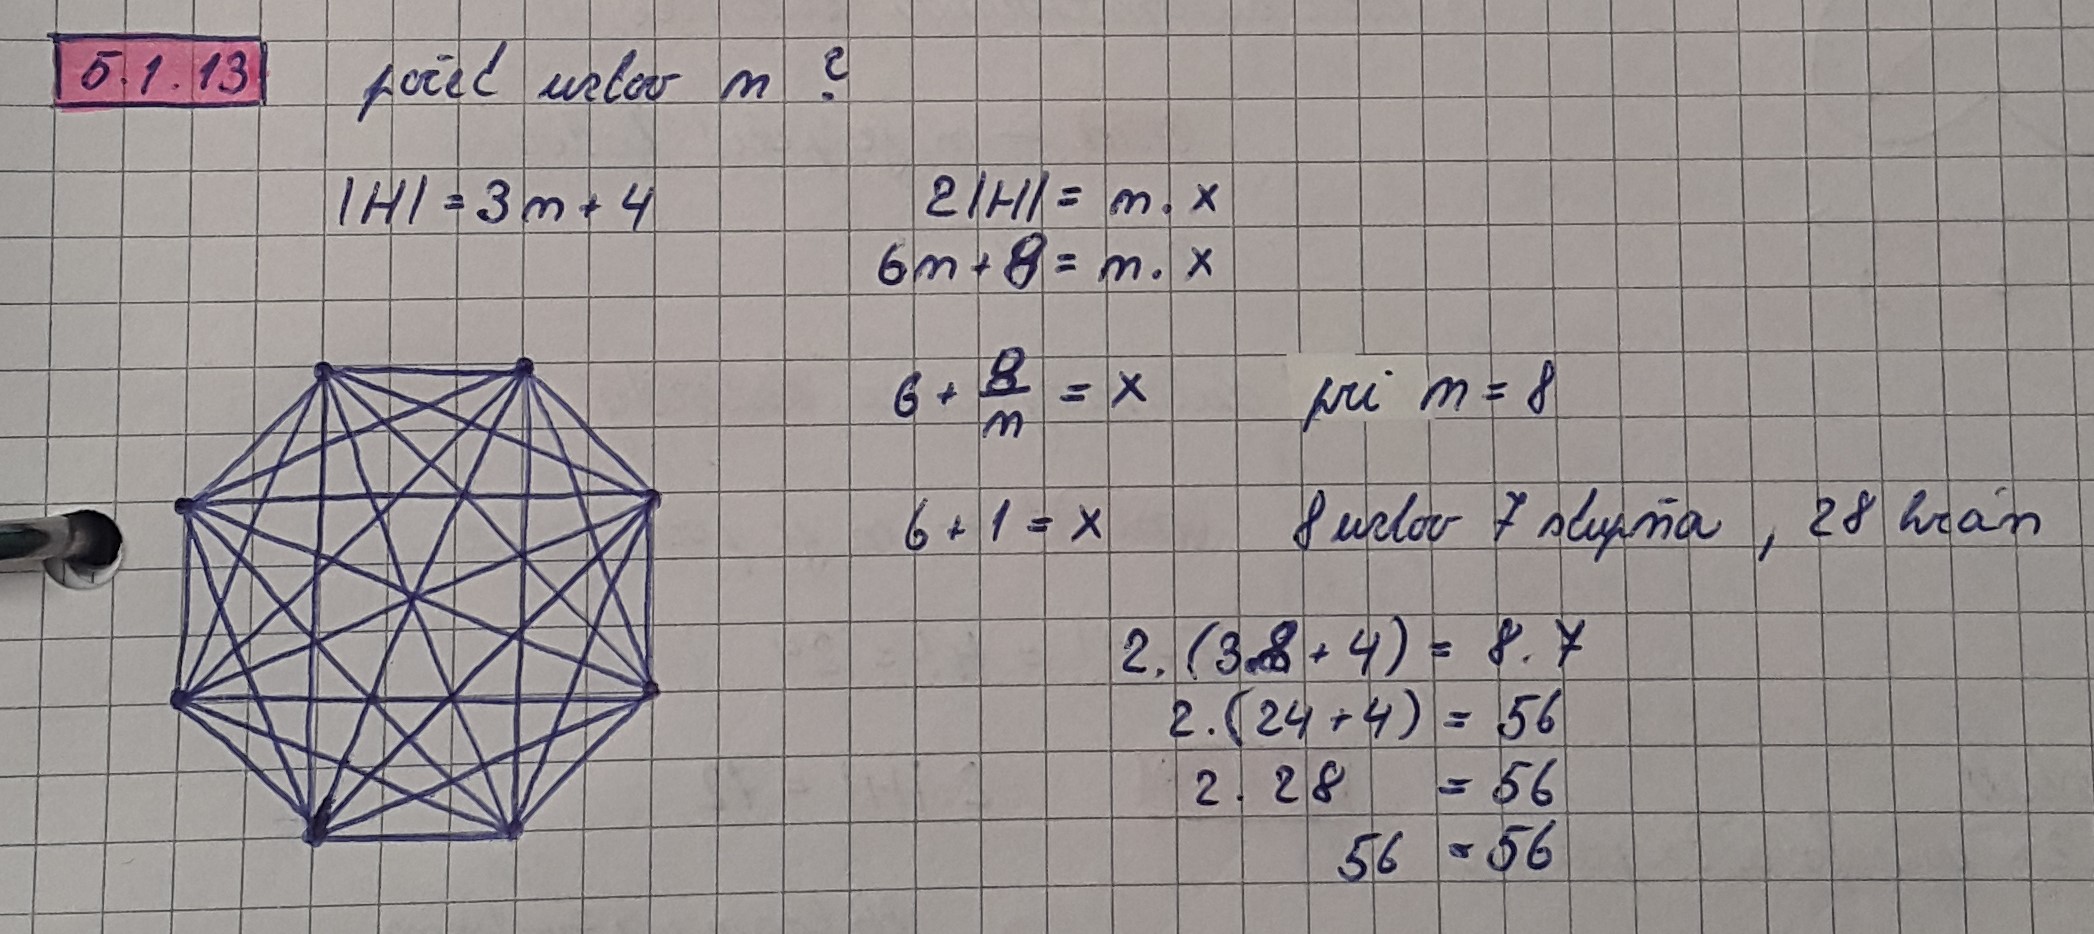 5.1.13 počet uzlov n ?
|H| = 3n + 4
2|H| = n . x
6n + 8 = n . x
6 + 8/n = x pri n = 8
6 + 1 = x 8 uzlov 7 stupňa , 28 hrán
2. (3.8 + 4) = 8.7
2. (24 + 4) = 56
2. 28 = 56
56 = 56